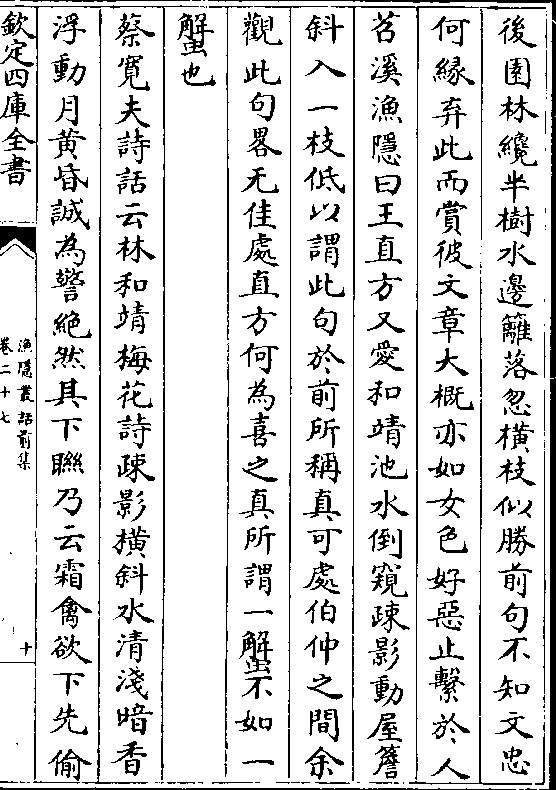 後園林纔半樹水邊籬落忽橫枝似勝前句不知文忠
何緣弃此而賞彼文章大概亦如女色好惡止繫於人
苕溪漁隱曰王直方又愛和靖池水倒窺疎影動屋簷
斜入一枝低以謂此句於前所稱真可處伯仲之間余
觀此句畧无佳處直方何為喜之真所謂一蠏不如一
蠏也
蔡寬夫詩話云林和靖梅花詩疎影橫斜水清淺暗香
浮動月黃昏誠為警絶然其下聮乃云霜禽欲下先偷
欽定四庫全書
漁隱叢話前集
卷二十七
十